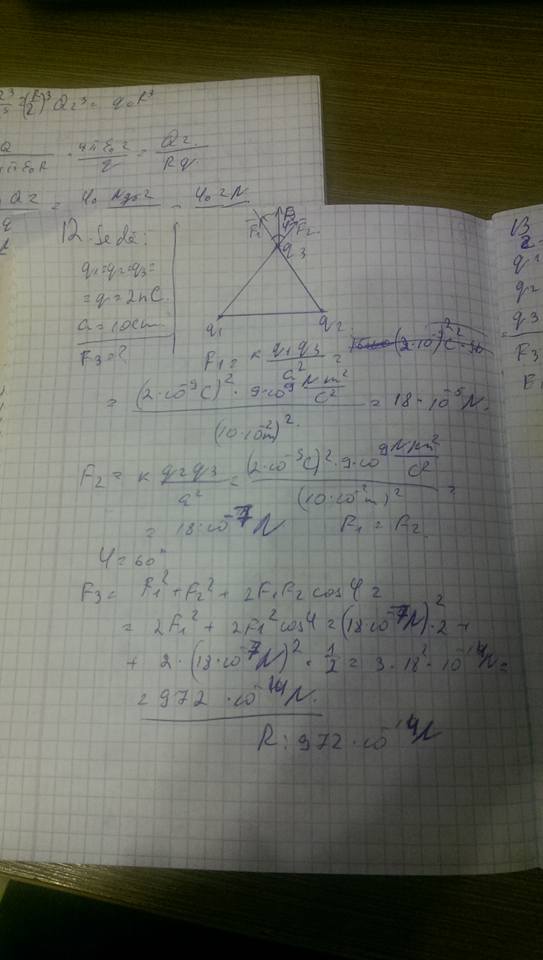 12. Se dă:
q₁=q₂=q₃=
=q=2nC.
a=10cm
F₃=?
F₁ F₂
q₃
q₁ q₂
F₁ = k q₁q₃/a² =
= (2·10⁻⁹C)²·9·10⁹ Nm²/C² / (10·10⁻²m)² = 18·10⁻⁵N.
F₂ = k q₂q₃/a² = (2·10⁻⁹C)²·9·10⁹ Nm²/C² / (10·10⁻²m)² =
= 18·10⁻⁷N F₁ = F₂.
φ=60°
F₃= F₁²+F₂²+2F₁F₂ cosφ =
= 2F₁² + 2F₁²cosφ = (18·10⁻⁷N)²·2 +
+ 2·(18·10⁻⁷N)²·1/2 = 3·18²·10⁻¹⁴N=
= 972·10⁻¹⁴N.
R: 972·10⁻¹⁴N
13
q₁
q₂
q₃
F₃